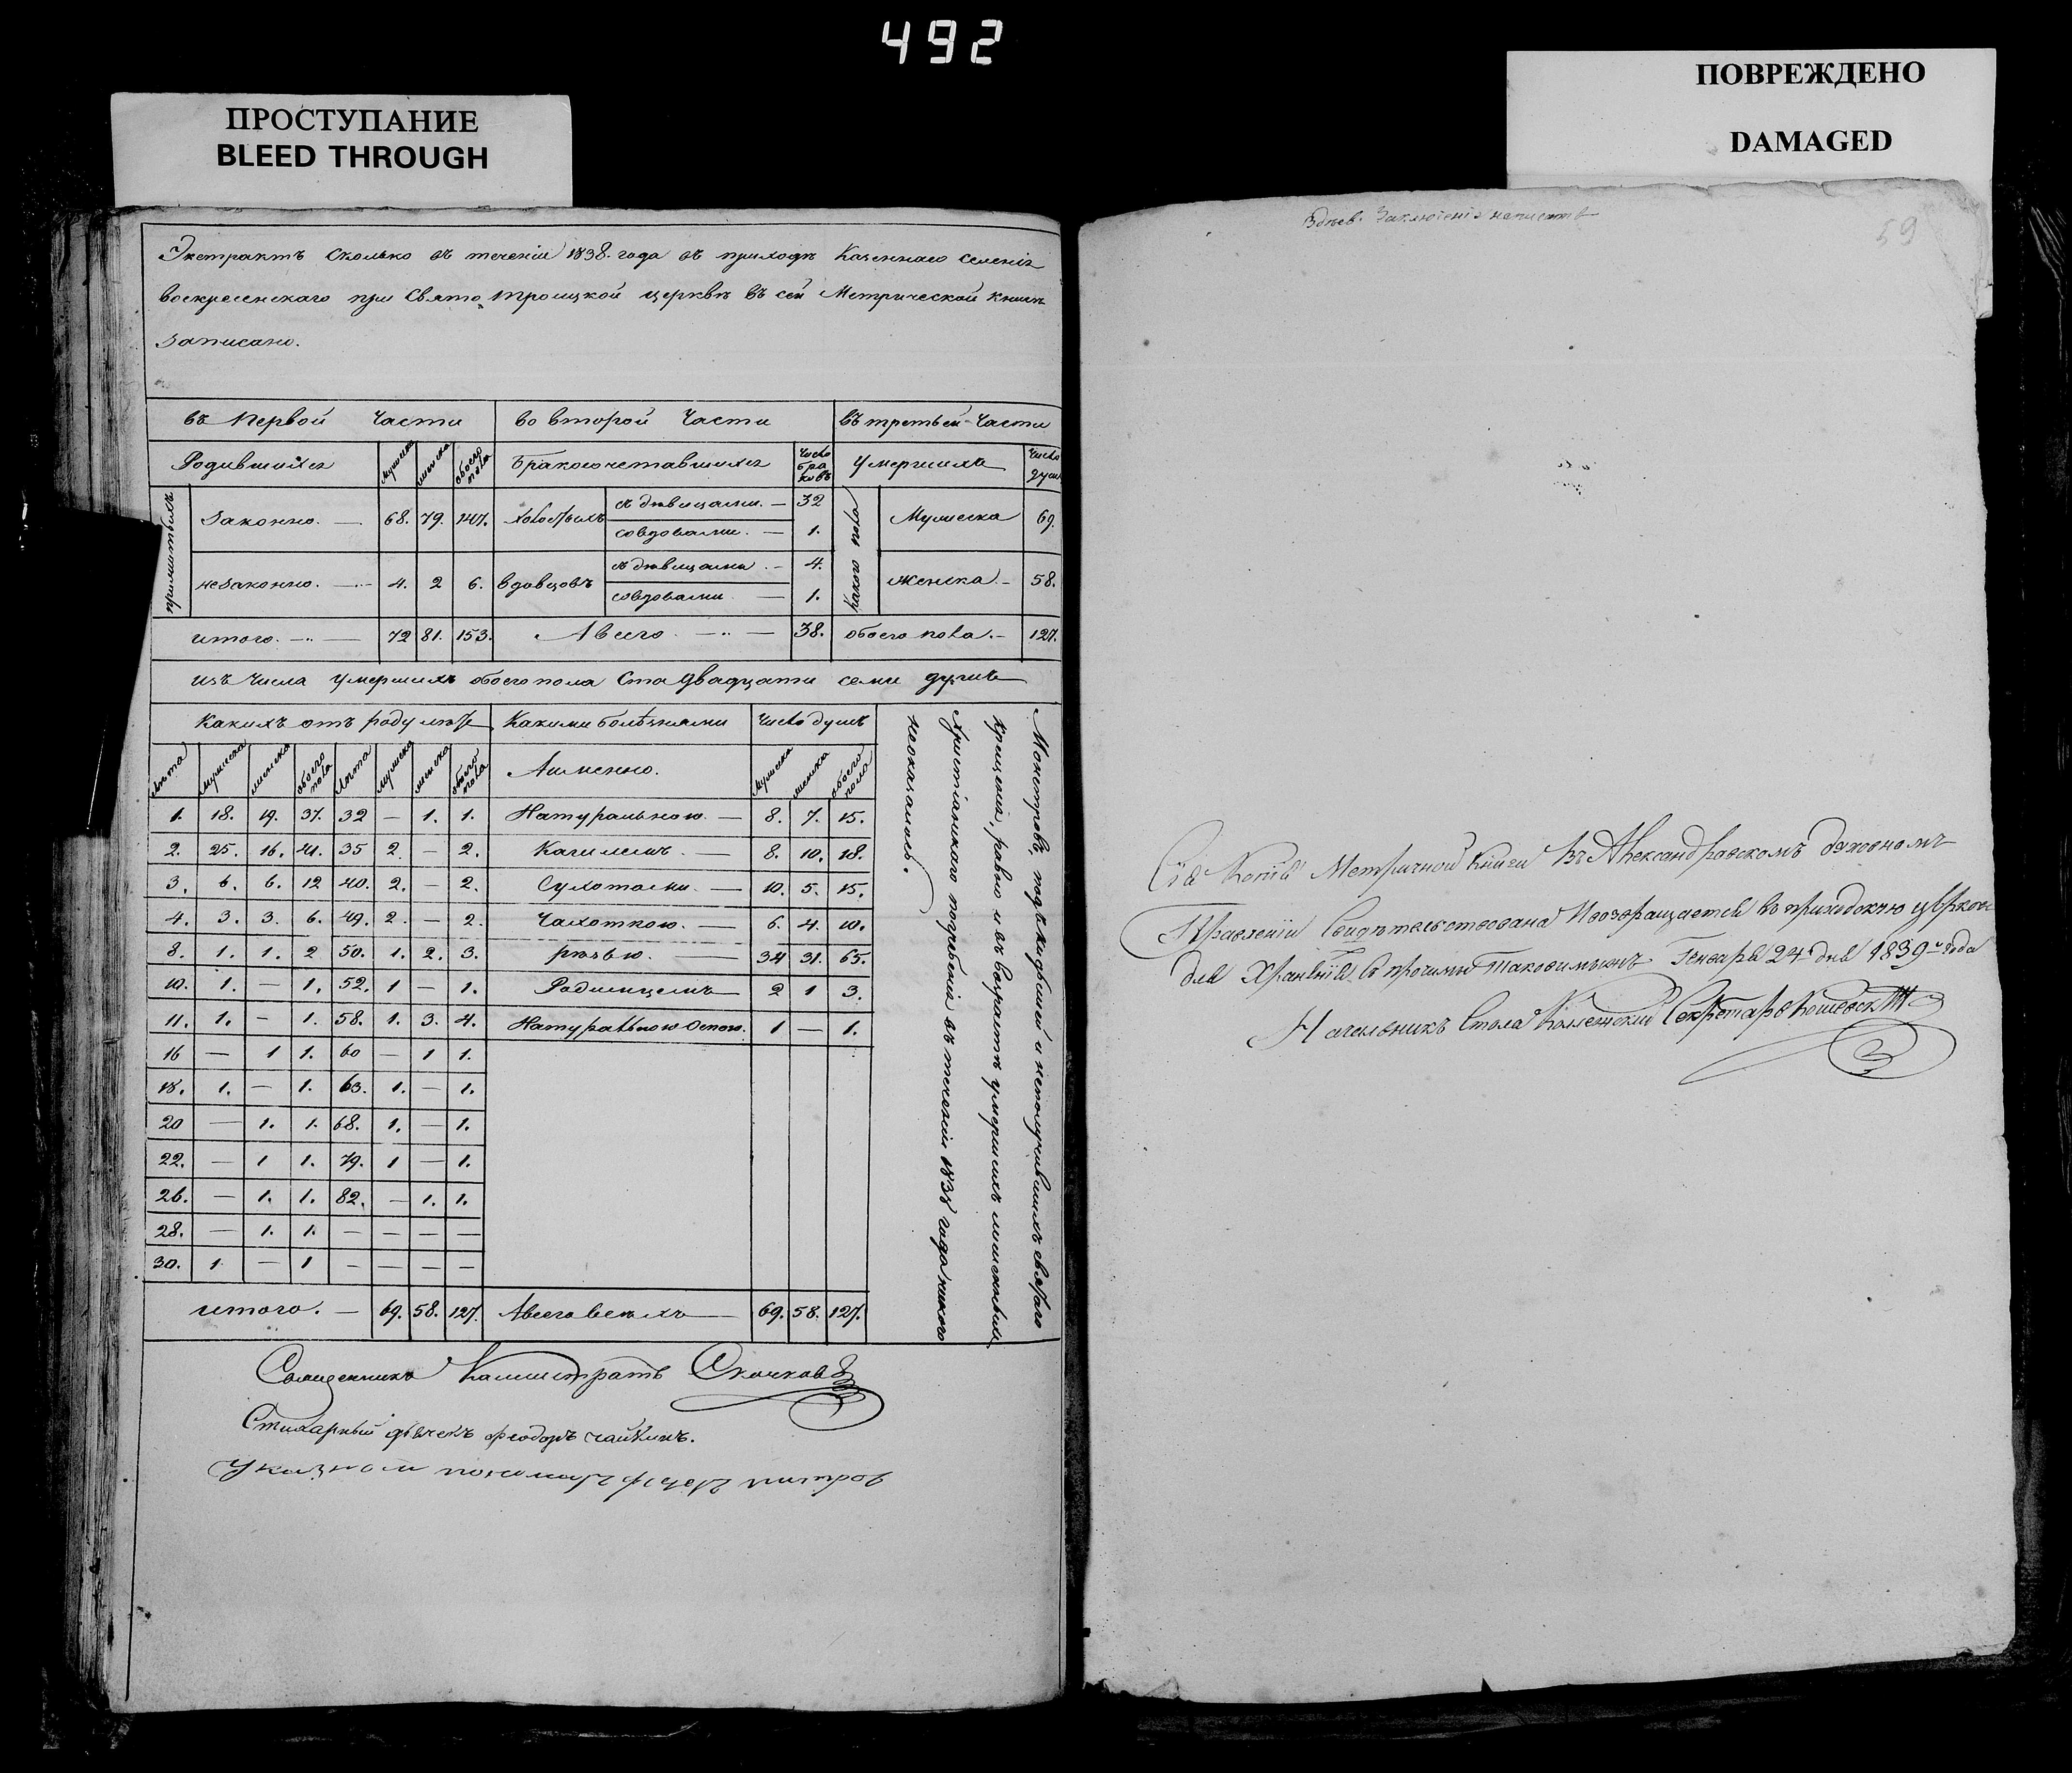 492
ПРОСТУПАНИЕ
BLEED THROUGH
ПОВРЕЖДЕНО
DAMAGED
Экстрактъ сколько въ теченіи 1838. года въ приходѣ Казеннаго селенія
воскресенскаго при Свято Троицкой церквѣ въ сей Метрической книгѣ
записано.
въ первой части во второй части въ третьей части
Родившихся мужеска женска обоего пола Бракосочетавшихся Число браковъ умершихъ Число душъ
законно. — 68. 79. 147. холостыхъ съ дѣвицами. — 32 какого пола Мужеска 69.
совдовами. — 1.
незаконно. — 4. 2 6. вдовцовъ съ дѣвицами. — 4. женска. — 58.
совдовами — 1.
итого. — 72 81. 153. Авсего — 38. обоего пола. — 127.
изъ числа умершихъ обоего пола Ста двадцати семи душъ
Какихъ отъ роду лѣтъ Какими болѣзнями Число душъ
лѣта мужеска женска обоего пола лѣта мужеска женска обоего пола Аименно. мужеска женска обоего пола
1. 18. 19. 37. 32 — 1. 1. Натуральною. — 8. 7. 15.
2. 25. 16. 41. 35 2. — 2. Кашлемъ. — 8. 10. 18.
3. 6. 6. 12 40. 2. — 2. Сухотами. — 10. 5. 15.
4. 3. 3. 6. 49. 2. — 2. Чахоткою. — 6. 4. 10.
8. 1. 1. 2 50. 1. 2. 3. рѣзью. — 34 31. 65.
10. 1. — 1. 52. 1 — 1. Родимцемъ — 2 1 3.
11. 1. — 1. 58. 1. 3. 4. Натуральною Оспою. 1 — 1.
16 — 1 1. 60 — 1 1.
18. 1. — 1. 63. 1. — 1.
20 — 1. 1. 68. 1. — 1.
22. — 1 1. 79. 1 — 1.
26. — 1. 1. 82. — 1. 1.
28. — 1. 1. — — — —
30. 1 — 1 — — — —
итого. — 69. 58. 127. Авсего всѣхъ — 69. 58. 127.
Монстровъ, подъ и неполучившихъ святаго
крещенія, равно и въ возрастѣ умершихъ лишенныхъ
христіанскаго погребенія въ теченіи 1838 года никого
неоказалось.
Священникъ Каллистратъ Скочковъ
Стихарный дьячекъ феодоръ чайкинъ.
пономарь
Здѣсь заключеніе написать
59
Сія Копія Метричной Книги Въ Александровскомъ духовномъ
Правленіи Свидѣтельствована Ивозвращается въ приходскую церковь
для Храненія съ прочими таковымижъ. Генваря 24 дня 1839го года
Начальникъ Стола Секретарь